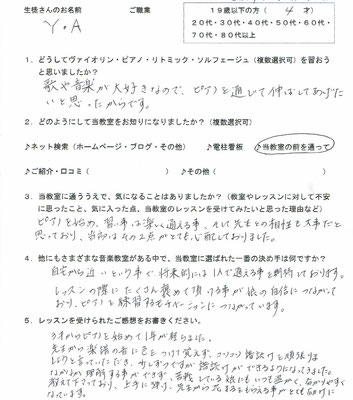 生徒さんのお名前 ご職業
Y.A
19歳以下の方 ( 4 才)
20代・30代・40代・50代・60代・
70代・80代以上
1．どうしてヴァイオリン・ピアノ・リトミック・ソルフェージュ（複数選択可）を習おう
と思いましたか？
歌や音楽が大好きなので、ピアノを通じて伸ばしてあげた
いと思ったからです。
2．どのようにして当教室をお知りになりましたか？（複数選択可）
♪ネット検索（ホームページ・ブログ・その他） ♪電柱看板 ♪当教室の前を通って
♪ご紹介・口コミ（ ） ♪その他（ ）
3．当教室に通ううえで、気になることはありましたか？（教室やレッスンに対して不安
に思ったこと、気に入った点、当教室のレッスンを受けてみたいと思った理由など）
ピアノを始め、習い事は楽しく通える事、そして先生との相性も大事だと
思っており、当初はその2点がとても心配しておりました。
4．他にもさまざまな音楽教室がある中で、当教室に選ばれた一番の決め手は何ですか？
自宅から近いという事で、将来的には1人で通える事を期待しております。
レッスンの際にたくさん褒めて頂ける事が娘の自信につながって
おり、ピアノを練習するモチベーションにつながっています。
5．レッスンを受けられたご感想をお書きください。
3才からピアノを始めて1年が経ちました。
先生から楽譜の音に○をつけて覚えず、コツコツ譜読みを頑張りま
しょうと言っていただき、少しずつですが譜読みができるようになってきました。
なかなか理解する事ができず、苦戦している娘にもいつも温かく、わかりやすく
教えて下さっており、上手に弾けて先生からもらえる事がとても